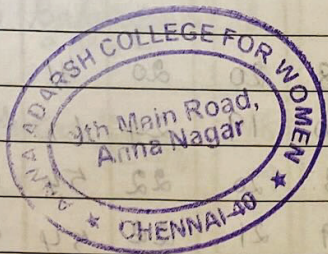 ANNA ADARSH COLLEGE FOR WOMEN
9th Main Road,
Anna Nagar
★ CHENNAI-40 ★
20
22